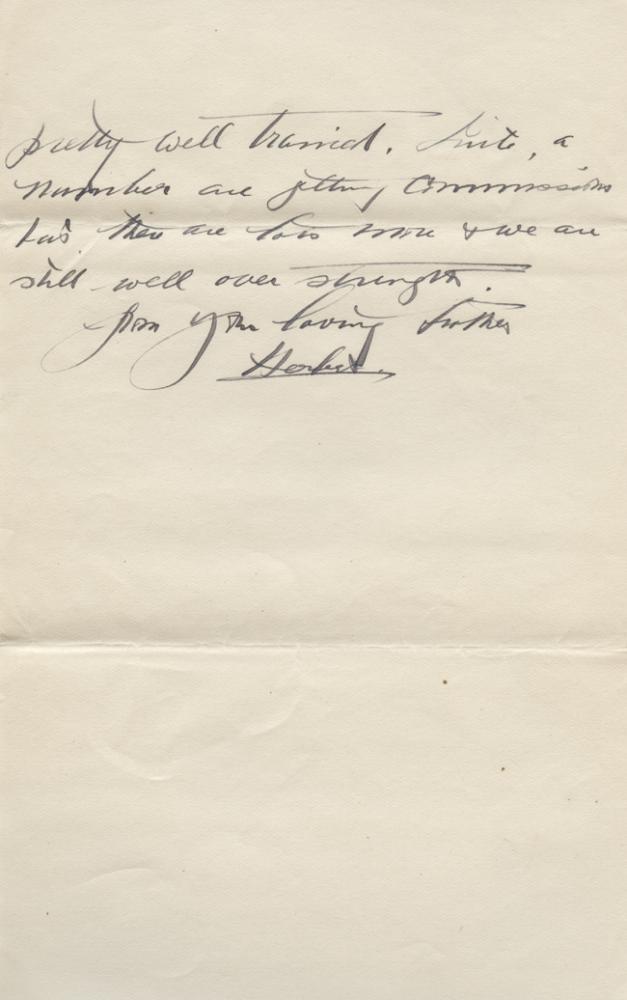 pretty well trained. Quite, a
number are getting Commissions
but there are lots more & we are
still well over strength.
from your loving brother
Herbert.